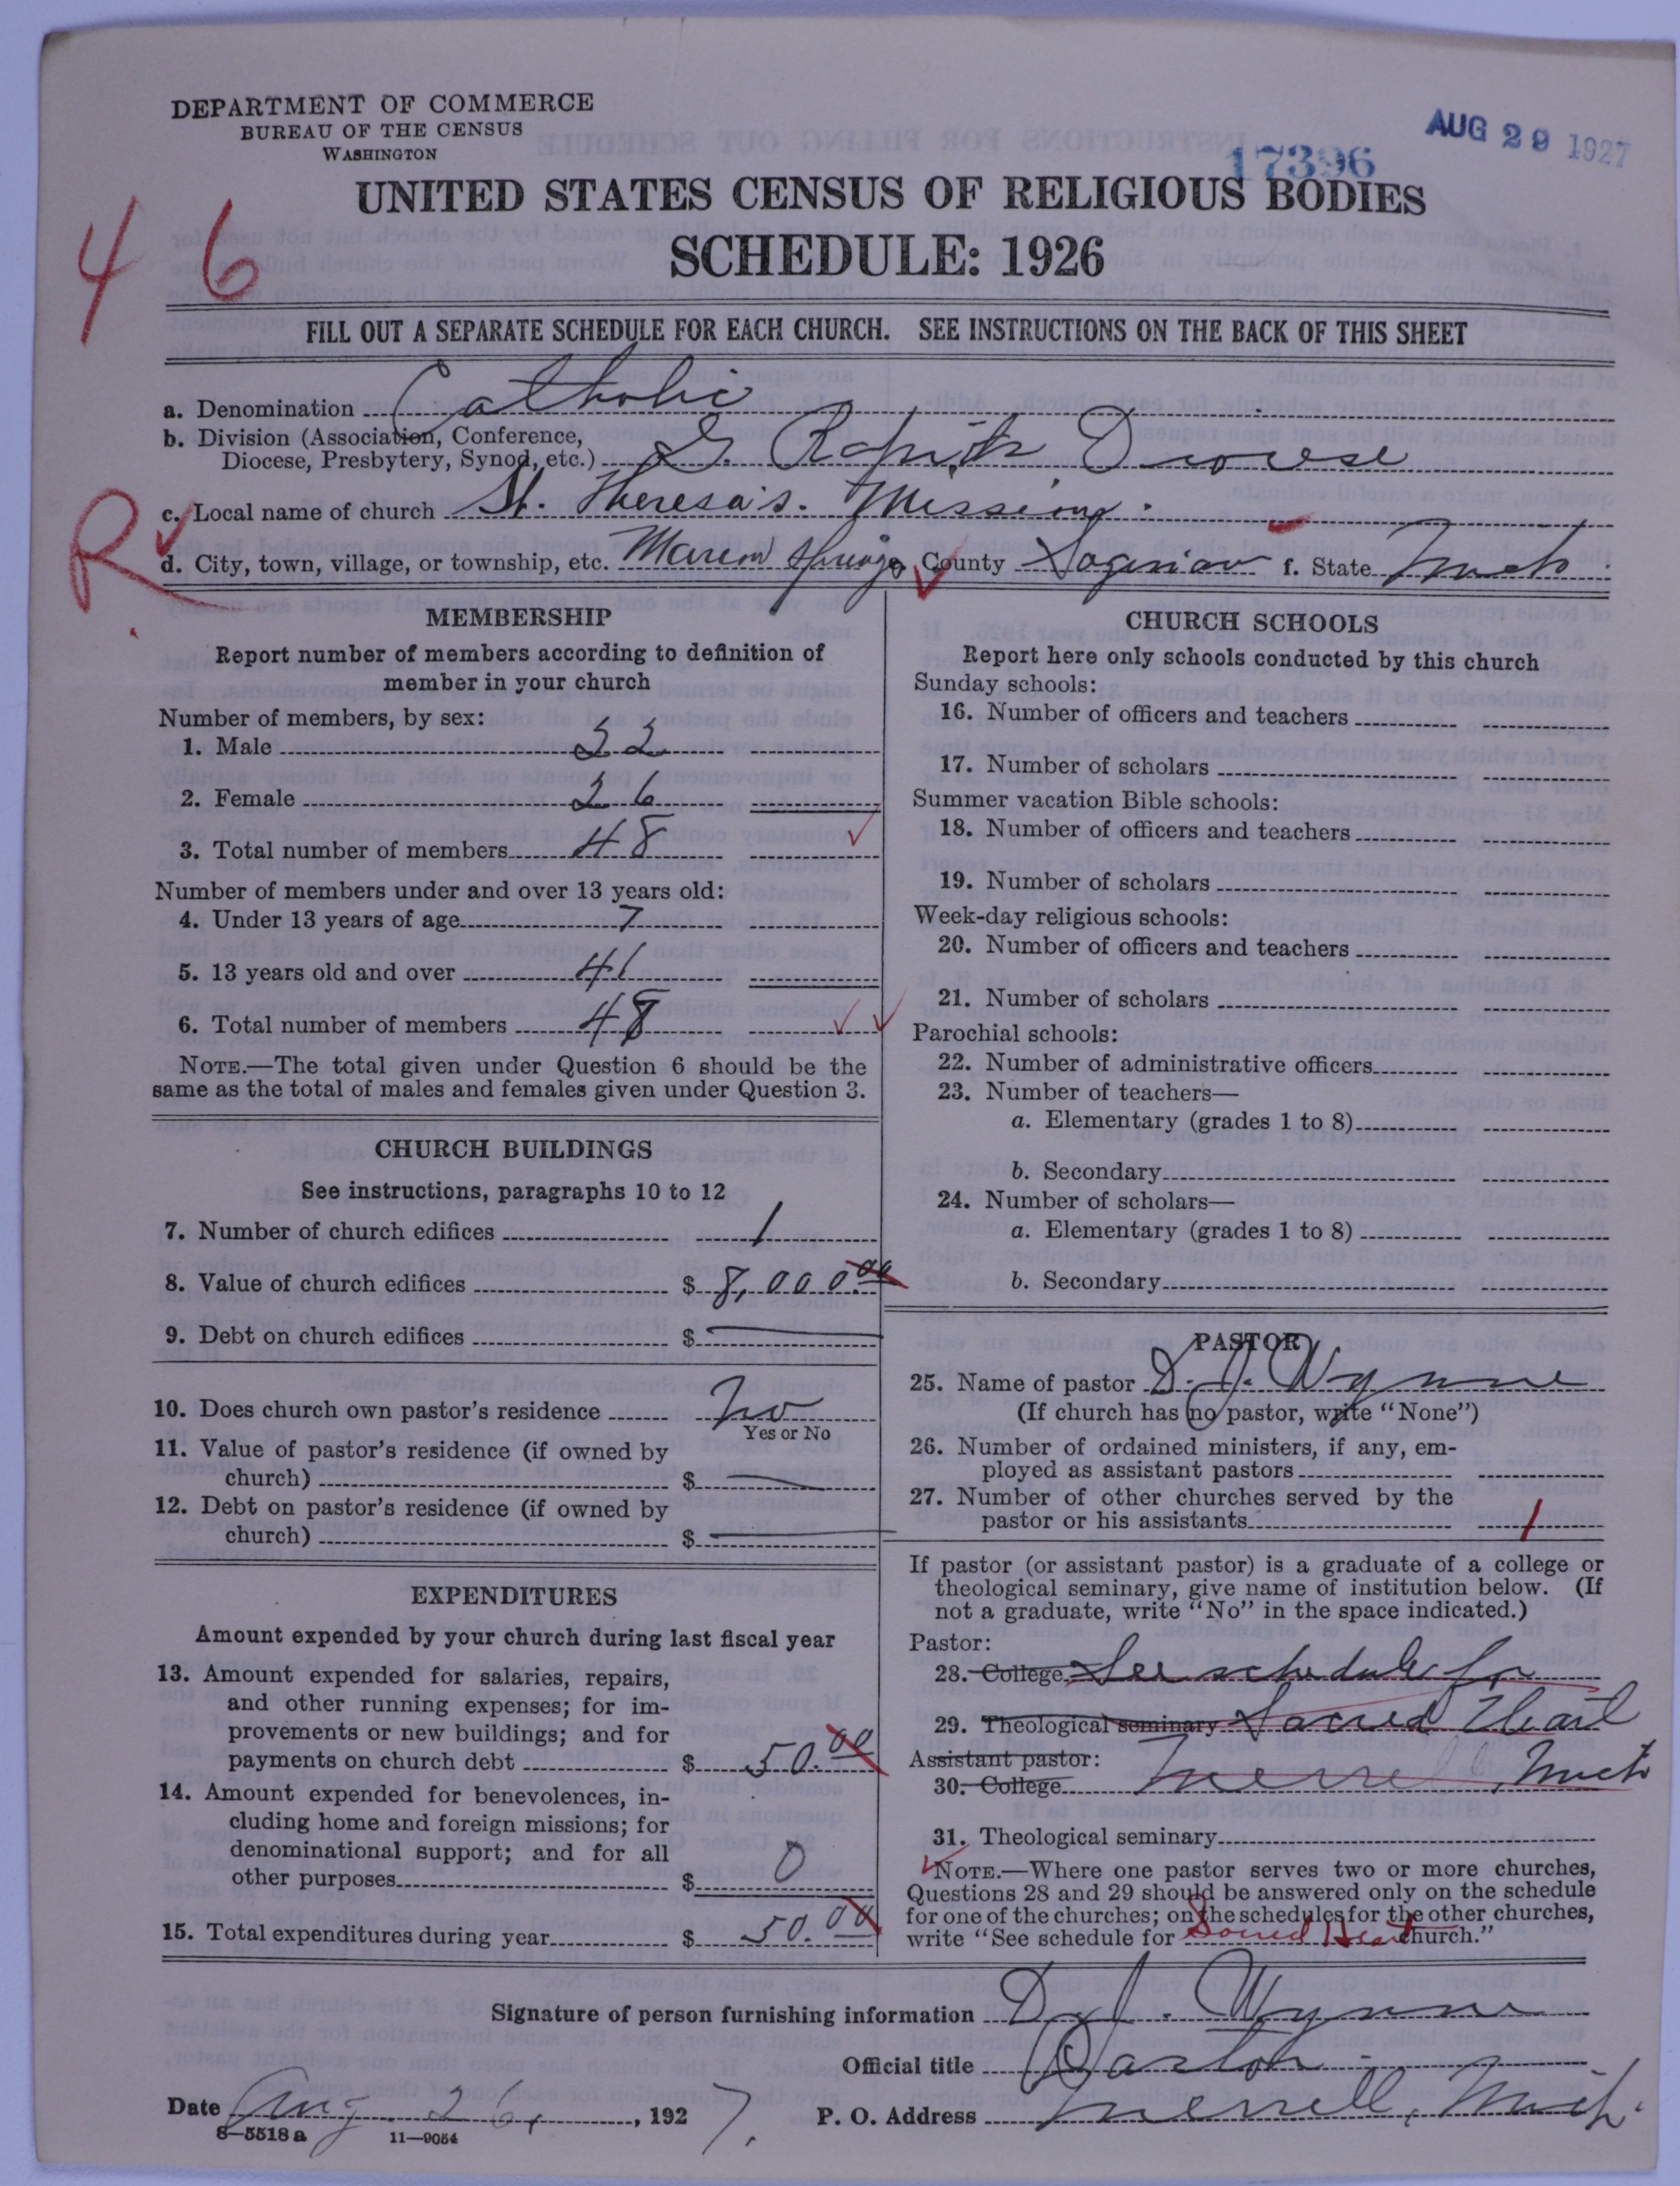 DEPARTMENT OF COMMERCE
BUREAU OF THE CENSUS
WASHINGTON
AUG 29 1927
17396
UNITED STATES CENSUS OF RELIGIOUS BODIES
SCHEDULE: 1926
46
FILL OUT A SEPARATE SCHEDULE FOR EACH CHURCH. SEE INSTRUCTIONS ON THE BACK OF THIS SHEET
a. Denomination Catholic
b. Division (Association, Conference,
Diocese, Presbytery, Synod, etc.) G. Rapids Diocese
R
c. Local name of church St. Theresa's. Mission.
d. City, town, village, or township, etc. Marion Springs County Saginaw f. State Mich.
MEMBERSHIP
Report number of members according to definition of
member in your church
Number of members, by sex:
1. Male 22
2. Female 26
3. Total number of members 48
Number of members under and over 13 years old:
4. Under 13 years of age 7
5. 13 years old and over 41
6. Total number of members 48
NOTE.—The total given under Question 6 should be the
same as the total of males and females given under Question 3.
CHURCH BUILDINGS
See instructions, paragraphs 10 to 12
7. Number of church edifices 1
8. Value of church edifices $ 8,000.00
9. Debt on church edifices $
10. Does church own pastor's residence No
Yes or No
11. Value of pastor's residence (if owned by
church) $
12. Debt on pastor's residence (if owned by
church) $
EXPENDITURES
Amount expended by your church during last fiscal year
13. Amount expended for salaries, repairs,
and other running expenses; for im-
provements or new buildings; and for
payments on church debt $ 50.00
14. Amount expended for benevolences, in-
cluding home and foreign missions; for
denominational support; and for all
other purposes $ 0
15. Total expenditures during year $ 50.00
CHURCH SCHOOLS
Report here only schools conducted by this church
Sunday schools:
16. Number of officers and teachers
17. Number of scholars
Summer vacation Bible schools:
18. Number of officers and teachers
19. Number of scholars
Week-day religious schools:
20. Number of officers and teachers
21. Number of scholars
Parochial schools:
22. Number of administrative officers
23. Number of teachers—
a. Elementary (grades 1 to 8)
b. Secondary
24. Number of scholars—
a. Elementary (grades 1 to 8)
b. Secondary
PASTOR
25. Name of pastor D. J. Wynne
(If church has no pastor, write "None")
26. Number of ordained ministers, if any, em-
ployed as assistant pastors
27. Number of other churches served by the
pastor or his assistants 1
If pastor (or assistant pastor) is a graduate of a college or
theological seminary, give name of institution below. (If
not a graduate, write "No" in the space indicated.)
Pastor:
28. College See schedule for
29. Theological seminary Sacred Heart
Assistant pastor:
30. College Merrell, Mich
31. Theological seminary
NOTE.—Where one pastor serves two or more churches,
Questions 28 and 29 should be answered only on the schedule
for one of the churches; on the schedules for the other churches,
write "See schedule for Sacred Heart Church."
Signature of person furnishing information D. J. Wynne
Official title Pastor.
Date Aug. 26, 1927.
P. O. Address Merrell, Mich.
8—5518 a 11—9054